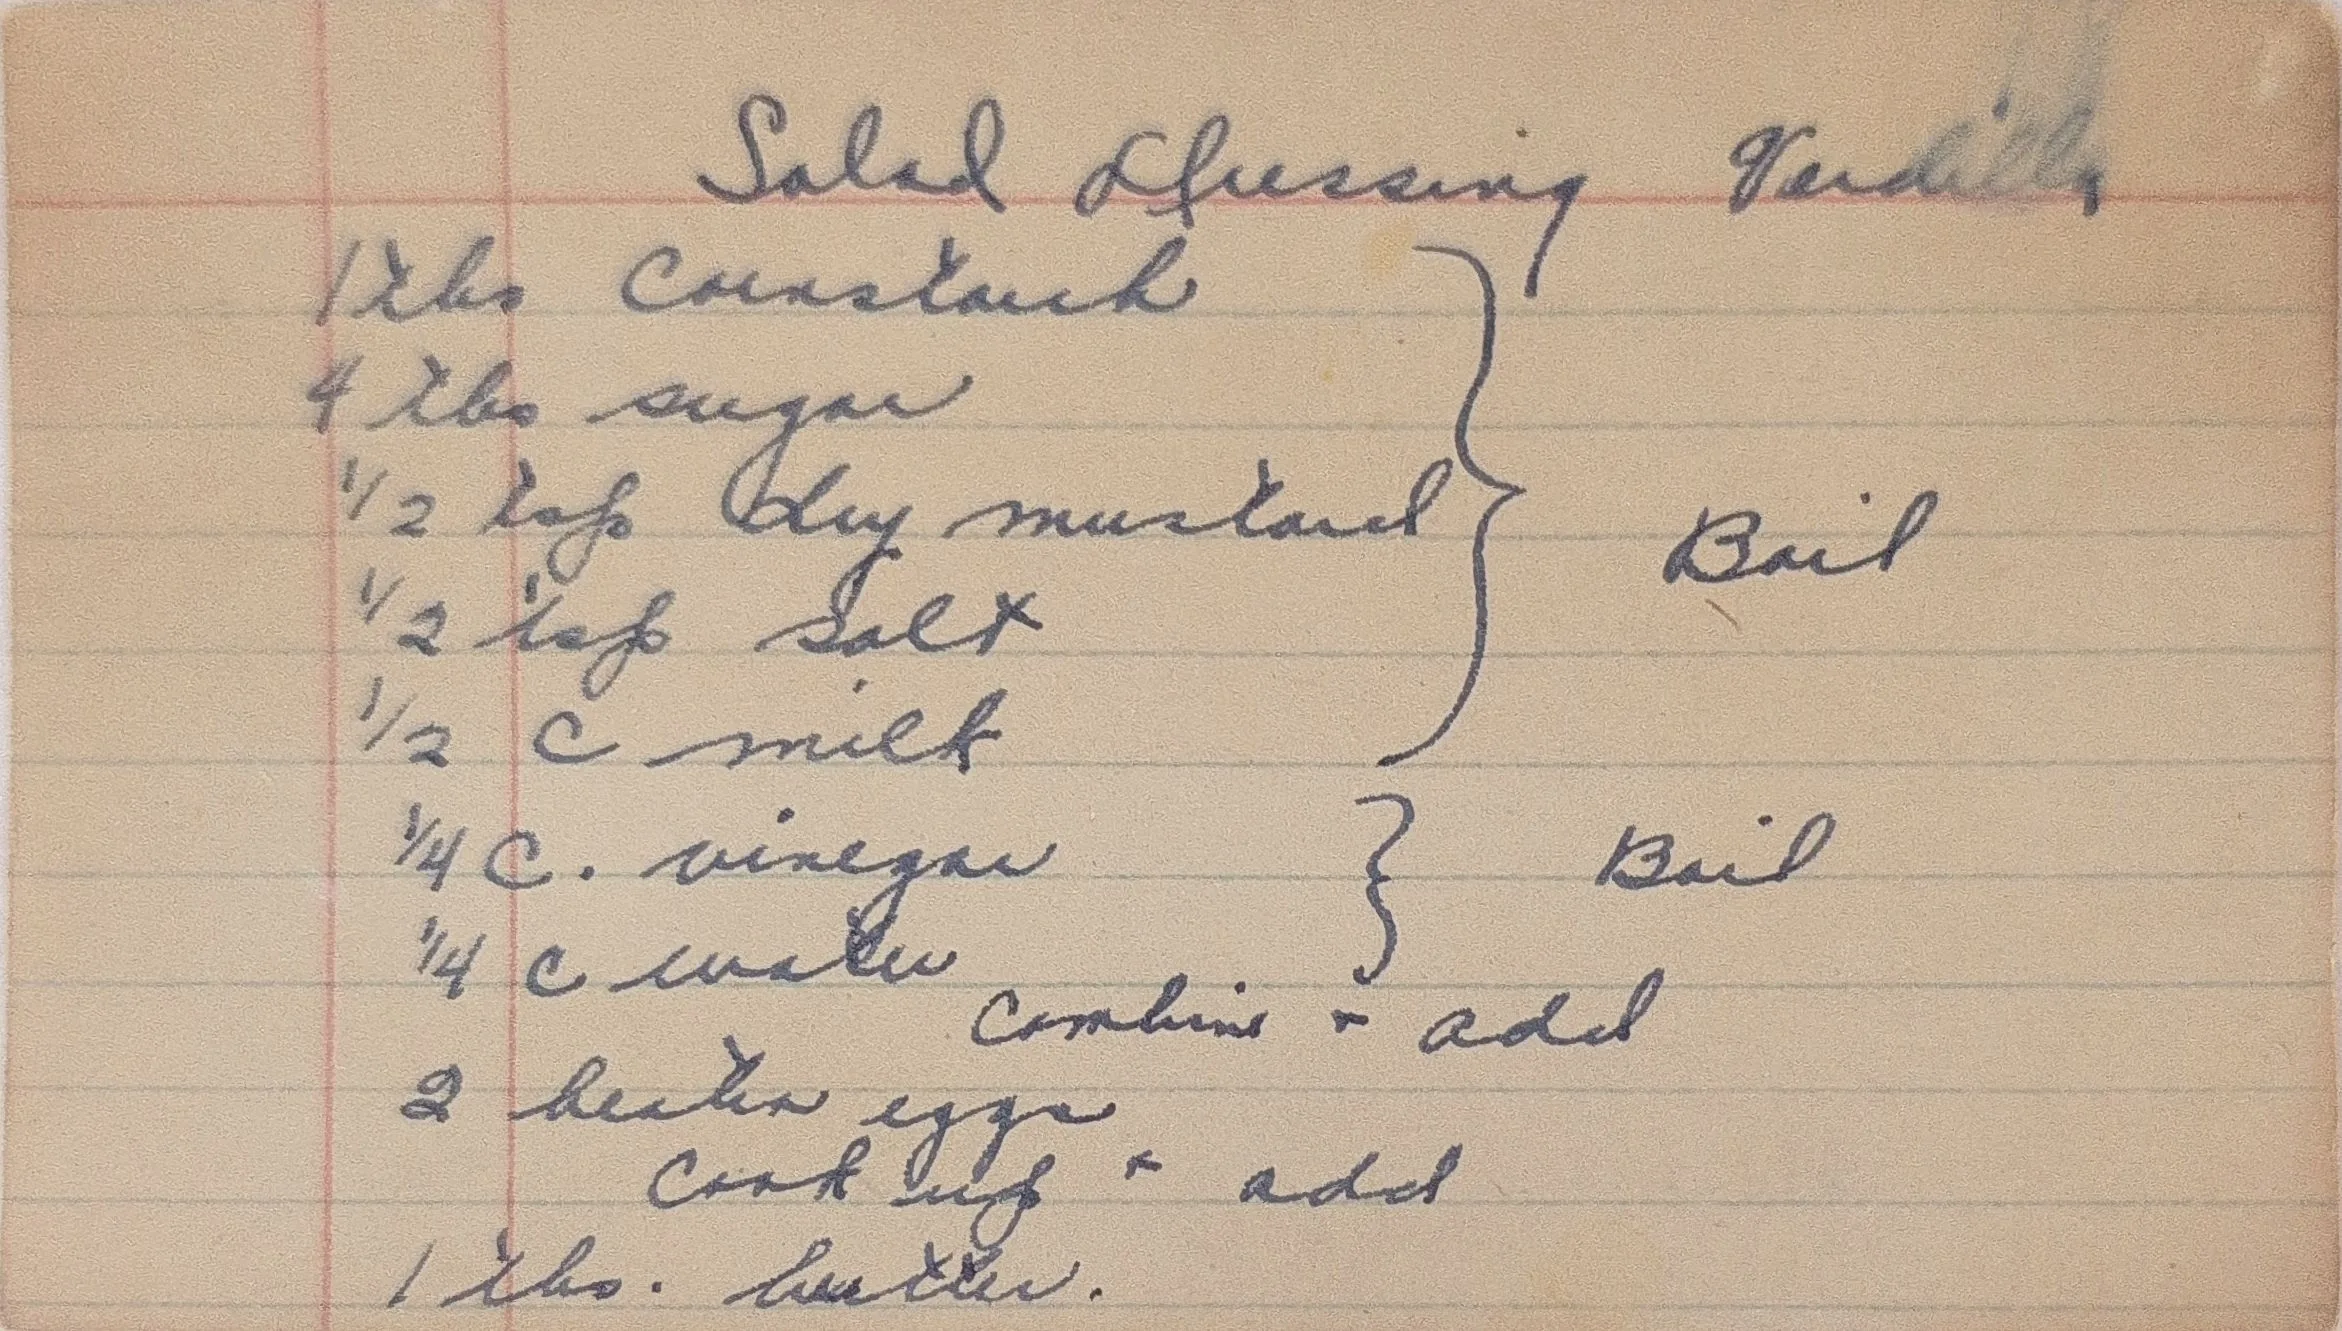 Salad Dressing
1 tbs Cornstarch
4 tbs sugar
1/2 tsp dry mustard
1/2 tsp salt
Boil
1/2 C milk
1/4 C. vinegar
Boil
1/4 C water
Combine + add
2 beaten eggs
Cook up + add
1 tbs. butter.